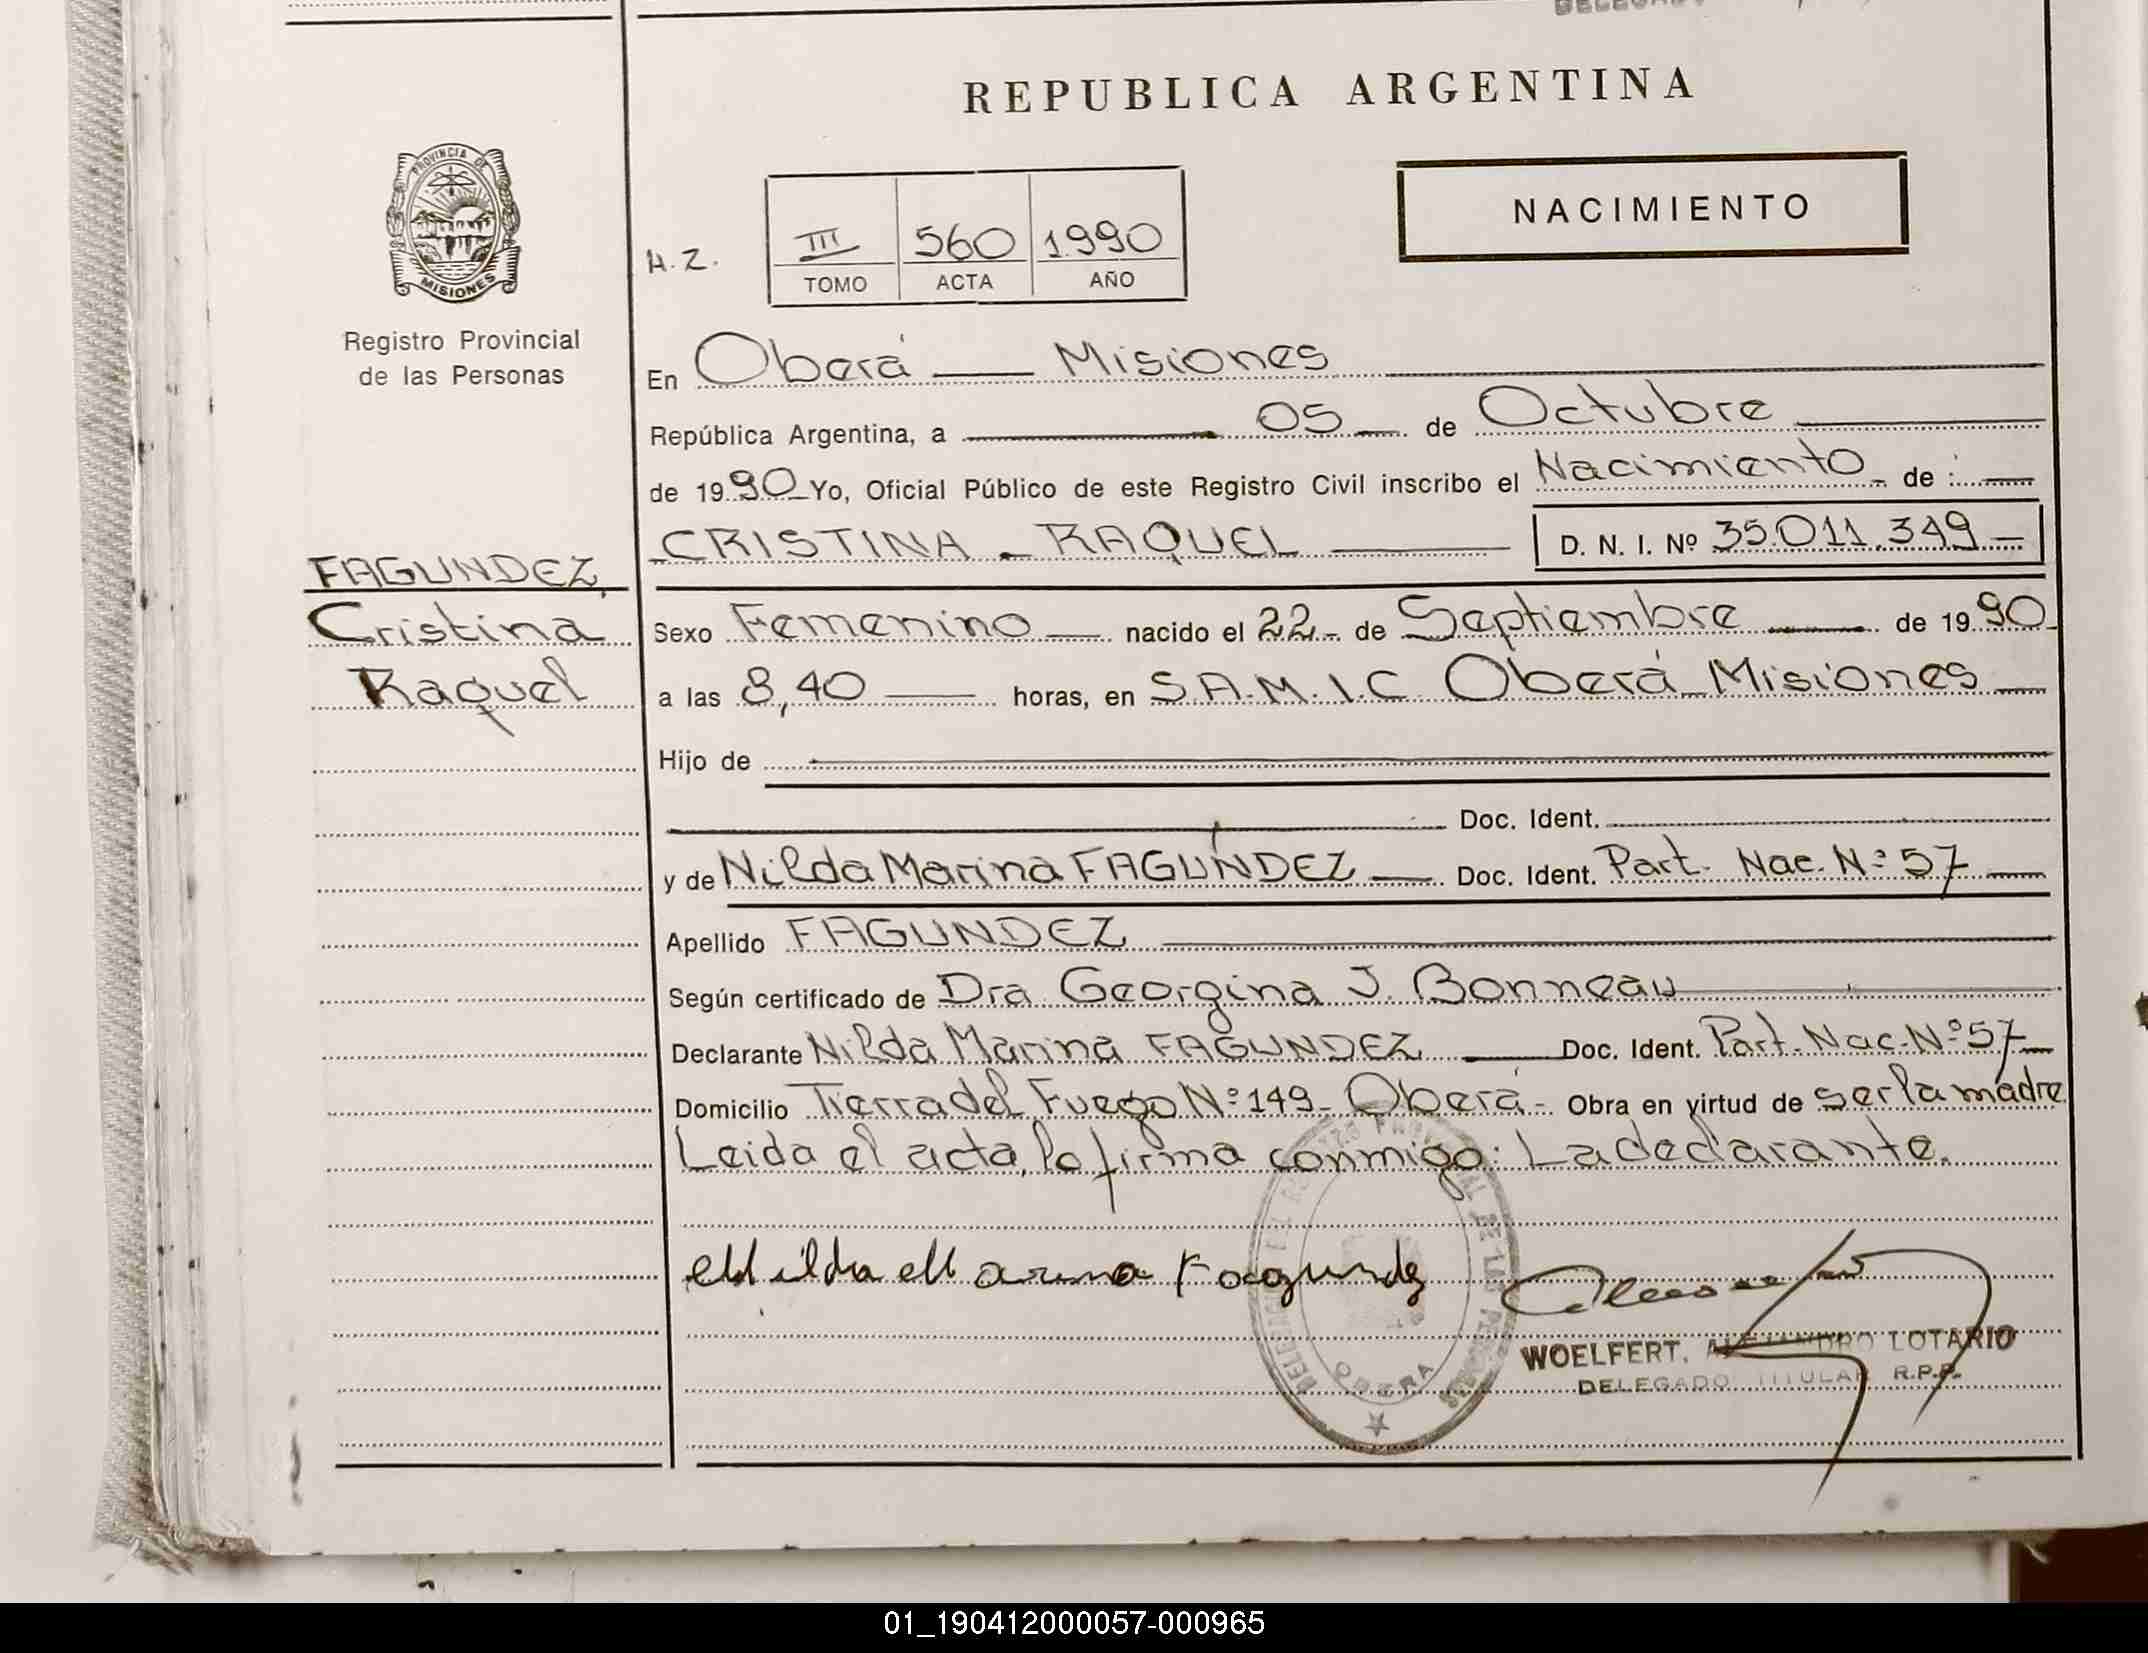 REPUBLICA ARGENTINA
PROVINCIA DE
MISIONES
Registro Provincial
de las Personas
NACIMIENTO
H.Z.
III 560 1990
TOMO ACTA AÑO
En Oberá Misiones
República Argentina, a 05 de Octubre
de 1990 Yo, Oficial Público de este Registro Civil inscribo el Nacimiento de :
CRISTINA - RAQUEL D. N. I. Nº 35.011.349
FAGUNDEZ,
Cristina
Raquel
Sexo Femenino nacido el 22 de Septiembre de 1990
a las 8,40 horas, en S.A.M.I.C. Oberá Misiones
Hijo de
Doc. Ident.
y de Nilda Marina FAGUNDEZ Doc. Ident. Part. Nac. Nº 57
Apellido FAGUNDEZ
Según certificado de Dra Georgina J. Bonneau
Declarante Nilda Marina FAGUNDEZ Doc. Ident. Part. Nac. Nº 57
Domicilio Tierra del Fuego Nº 149 - Oberá - Obra en virtud de ser la madre
Leida el acta, lo firma conmigo: La declarante.
Nilda Marina Fagundez
WOELFERT, ALEJANDRO LOTARIO
DELEGADO TITULAR R.P.P.
OBERA
01_190412000057-000965